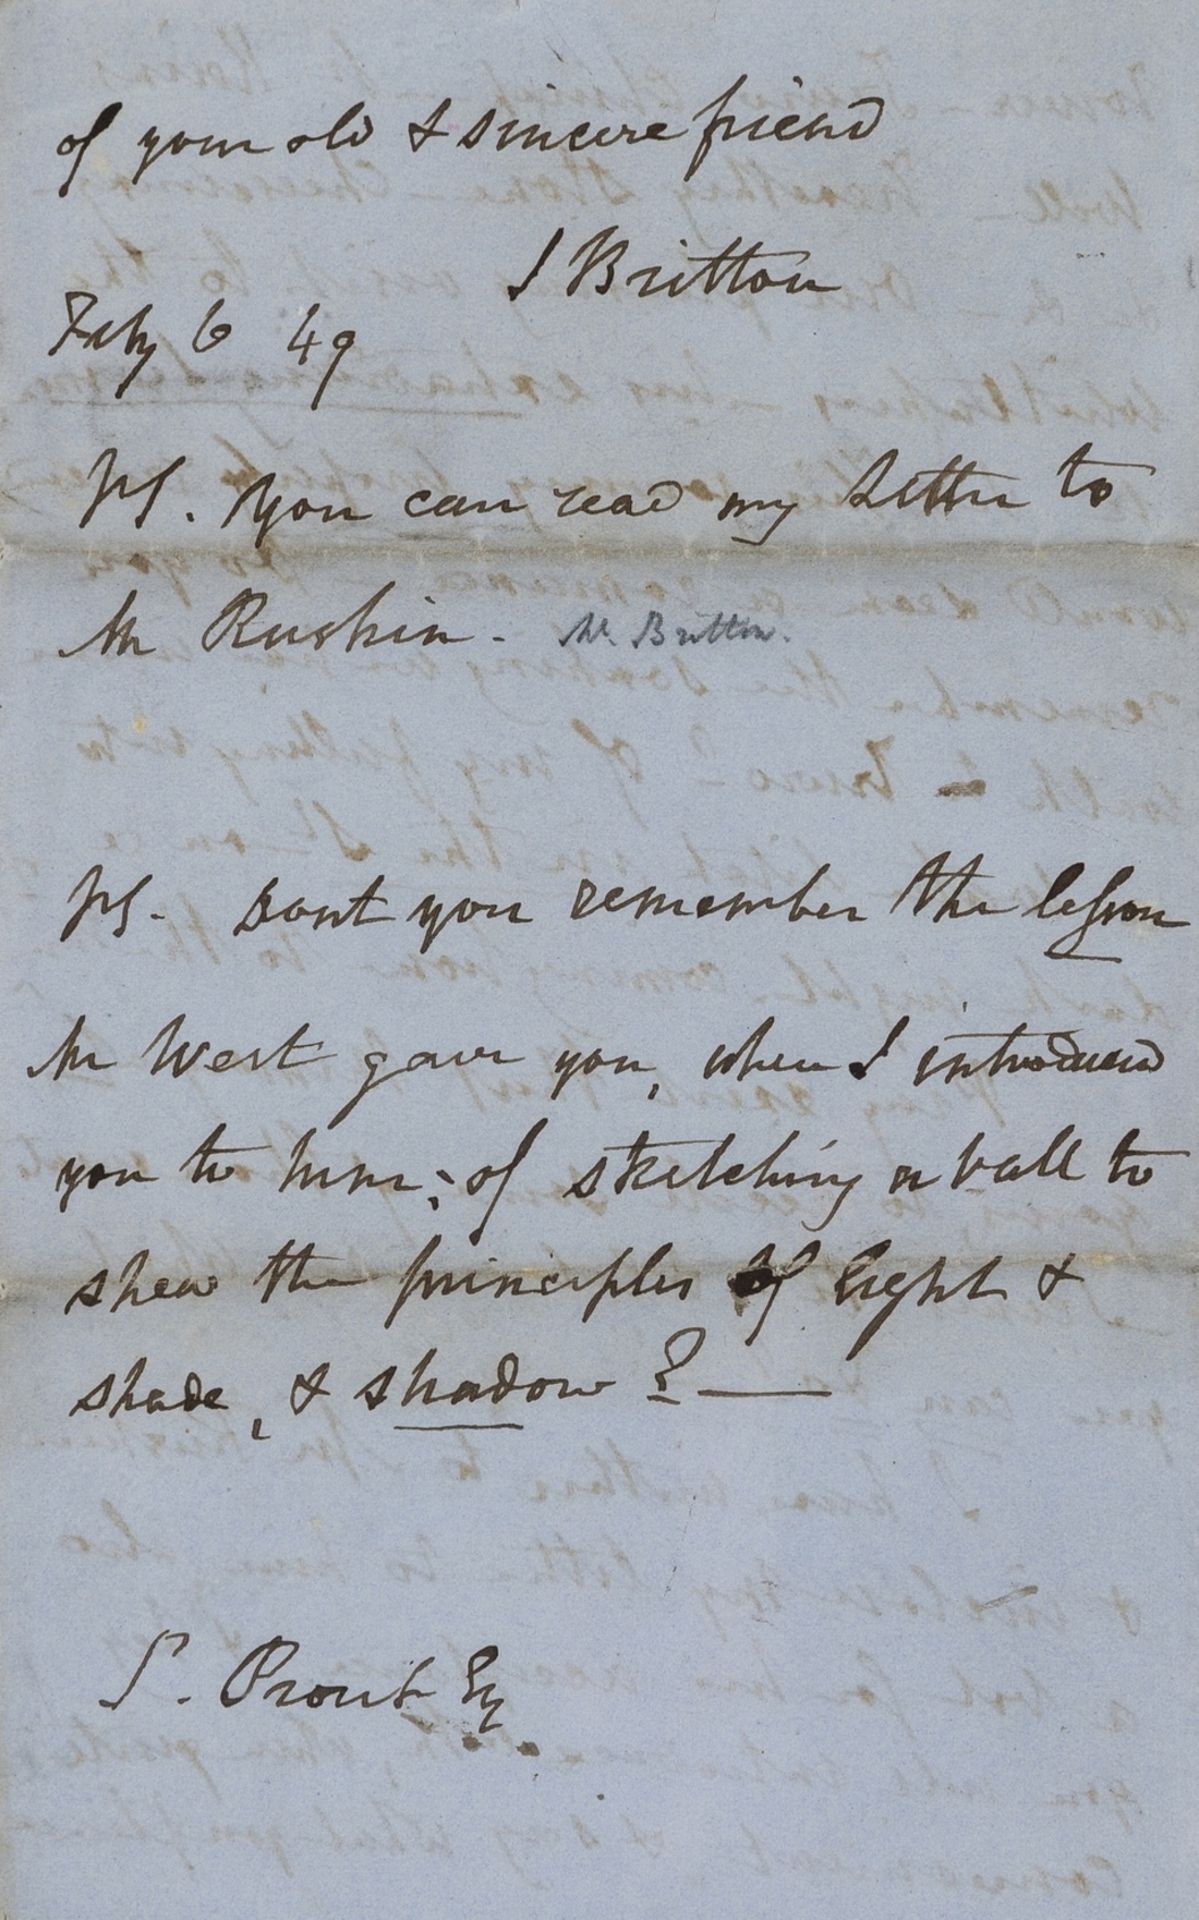 of your old & sincere friend
J Britton
Feby 6 49
PS. You can read my Letter to
Mr Ruskin - Mr. Britton.
PS. dont you remember the lesson
Mr West gave you, when I introduced
you to him; of sketching a ball to
shew the principles of light &
shade, & shadow ?
S. Prout Esq